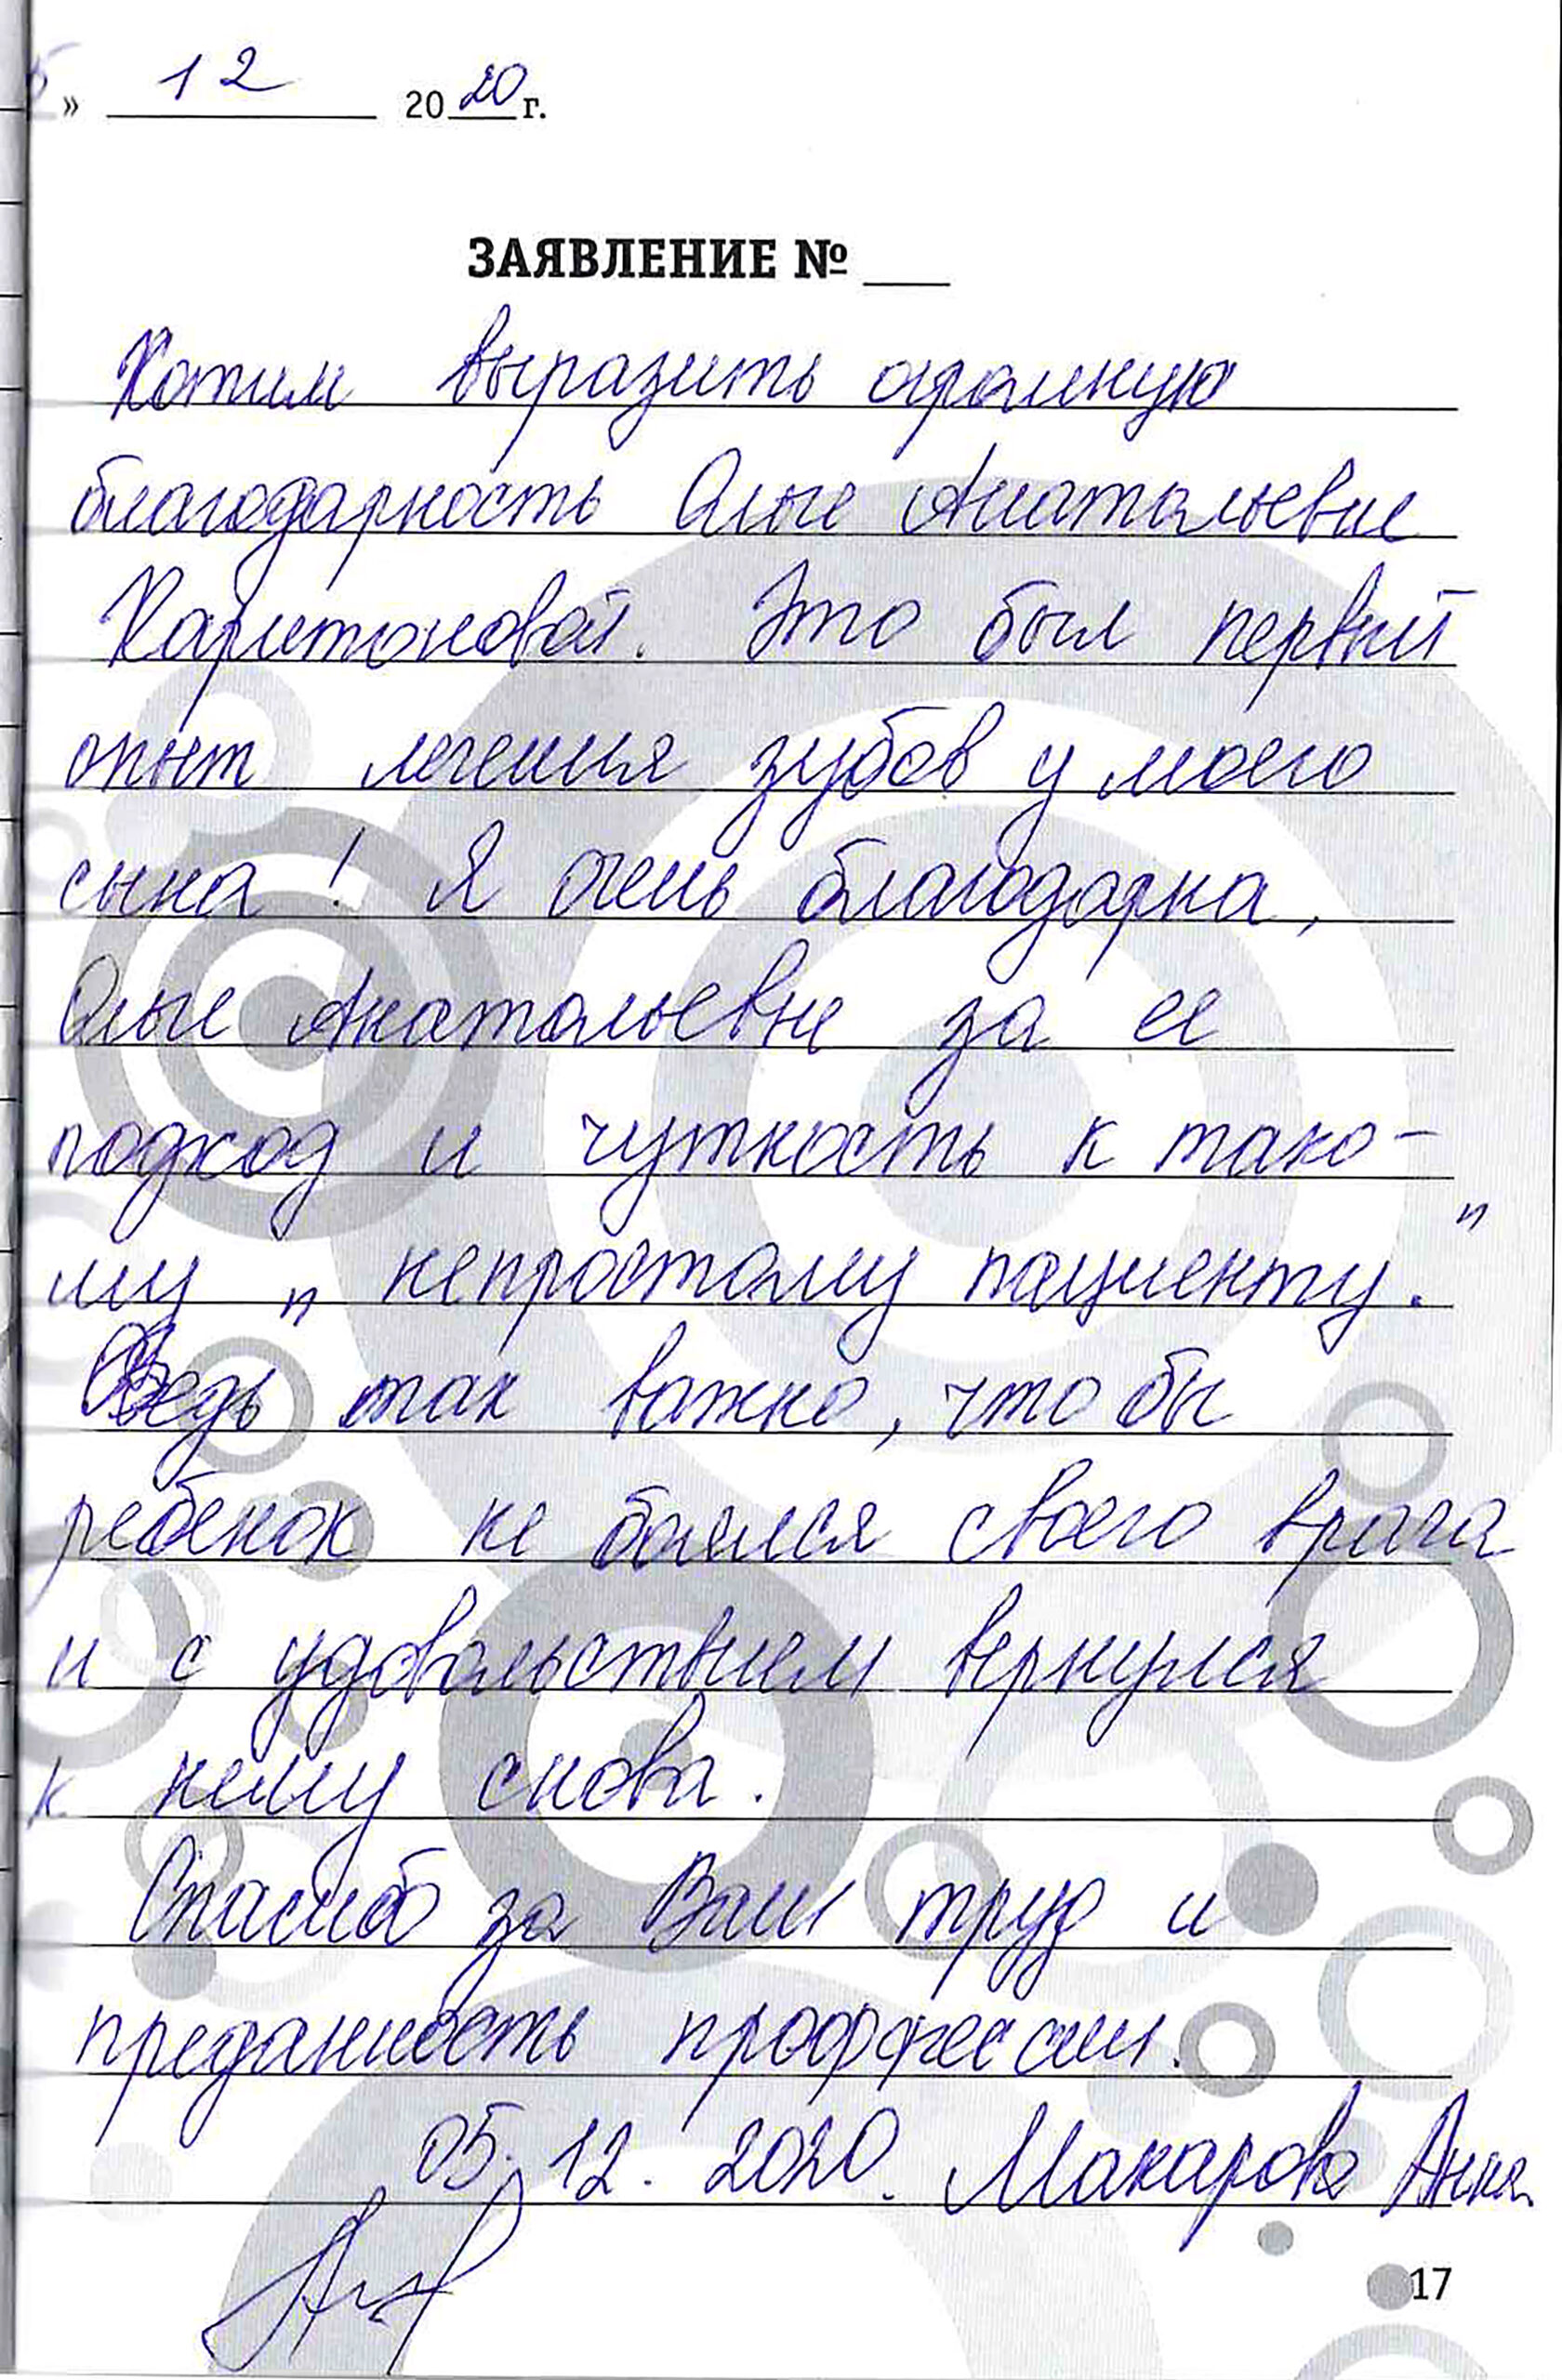 5 » 12 2020 г.
ЗАЯВЛЕНИЕ № ___
Хотим выразить огромную
благодарность Ольге Анатольевне
Харитоновой. Это был первый
опыт лечения зубов у моего
сына! Я очень благодарна,
Ольге Анатольевне за ее
подход и чуткость к тако-
му „непростому пациенту."
Ведь так важно, что бы
ребенок не боялся своего врача
и с удовольствием вернулся
к нему снова.
Спасибо за Ваш труд и
преданность проффессии.
05.12.2020. Макарова Анна
17